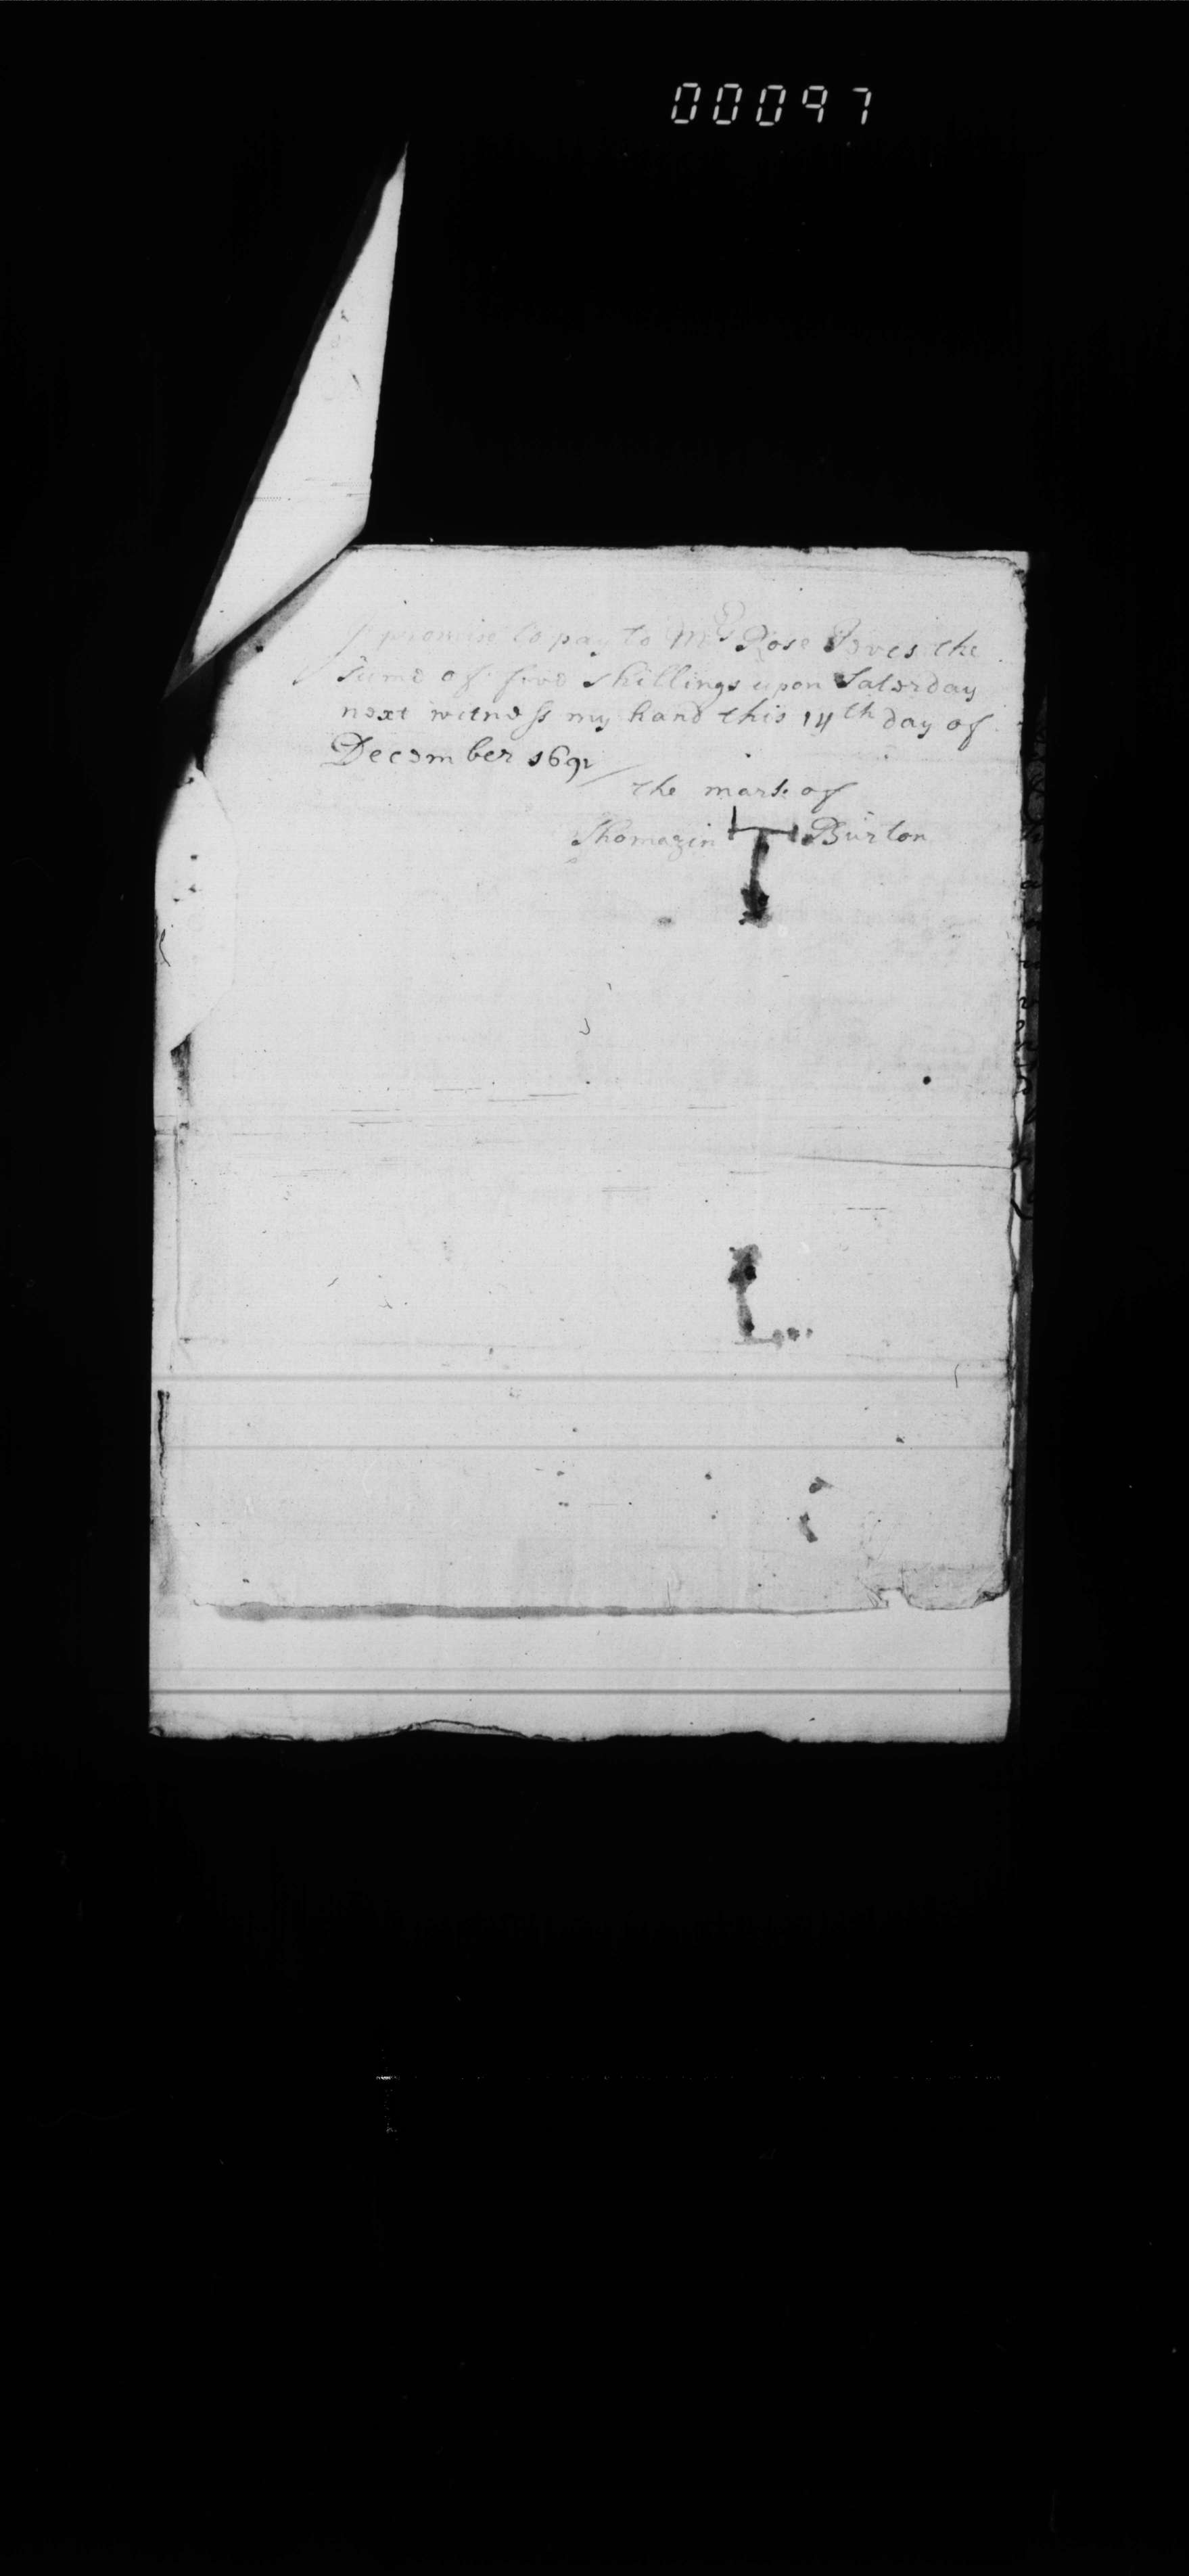 00097
I promise to pay to Mrs Rose Ives the
sume of five shillings upon Saterday
next witness my hand this 14th day of
December 1691
the mark of
Thomazin Burton